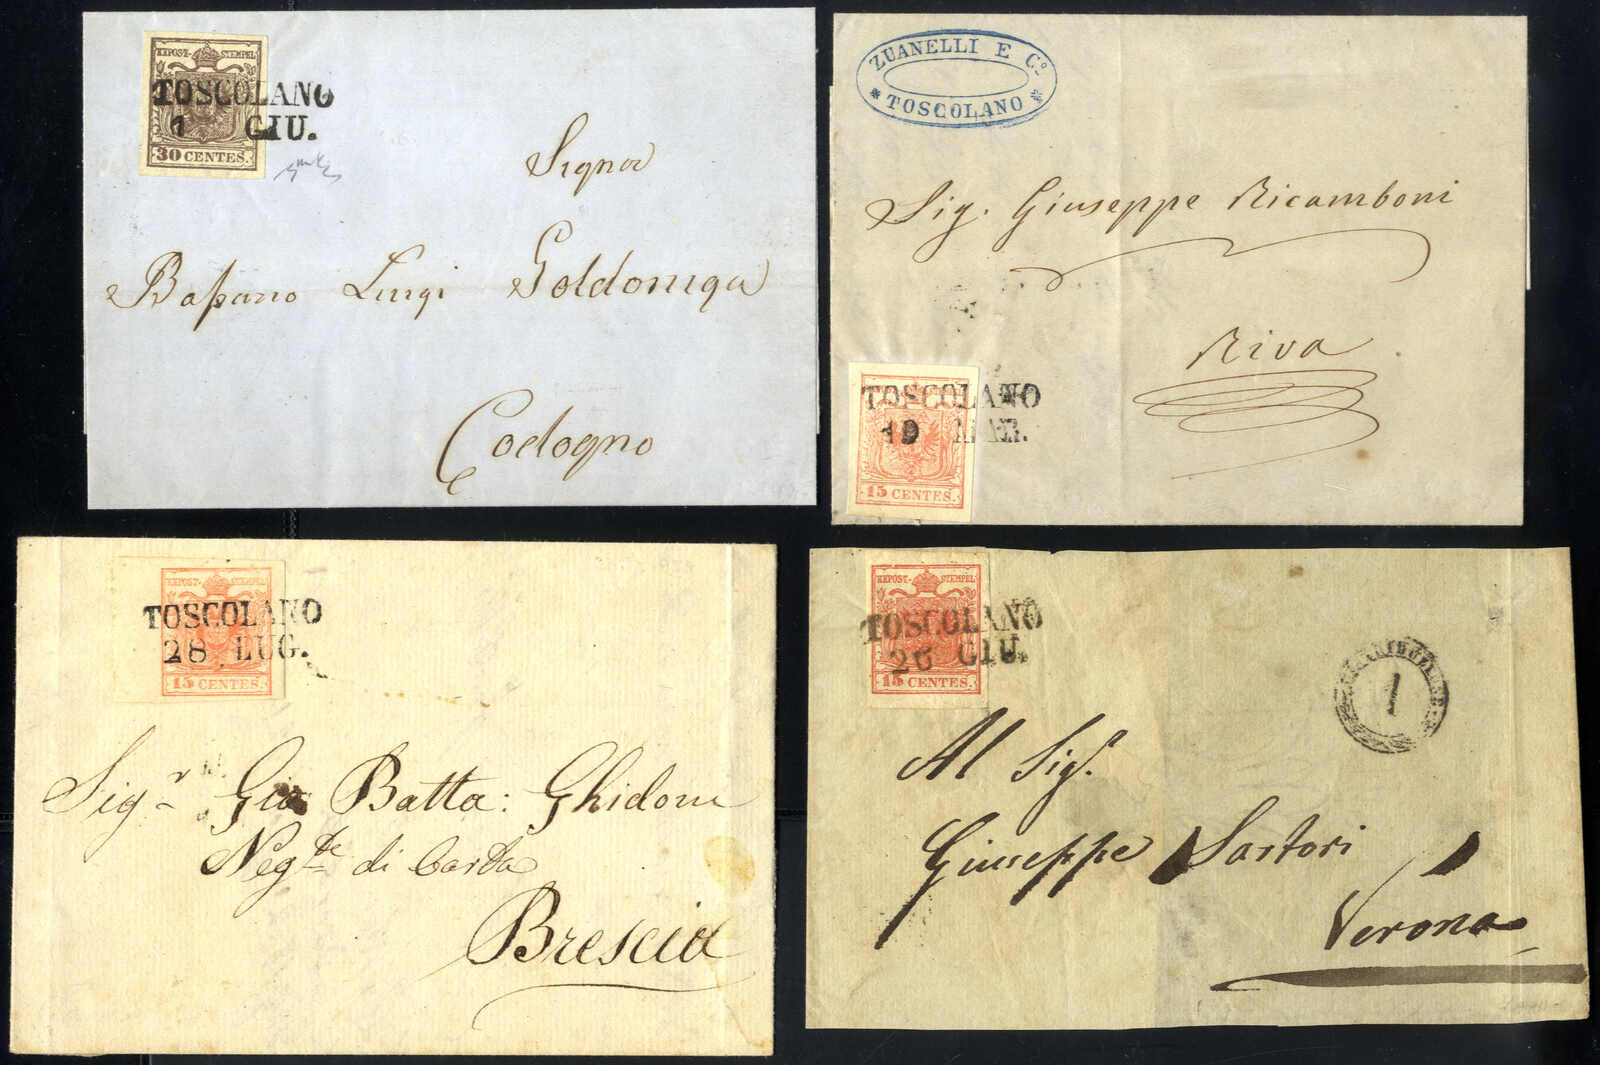 KREUZPOST-STEMPEL
TOSCOLANO
1 GIU.
30 CENTES.
Signor
Bassano Luigi Goldoniga
Codogno
ZUANELLI E C.º
* TOSCOLANO *
Sig. Giuseppe Ricamboni
Riva
TOSCOLANO
19 MAR.
15 CENTES.
TOSCOLANO
28 LUG.
15 CENTES.
Sig.r Gio Batta: Ghidoni
Neg.te di Carta
Brescia
TOSCOLANO
26 GIU.
15 CENTES.
1
Al Sig.r
Giuseppe Sartori
Verona